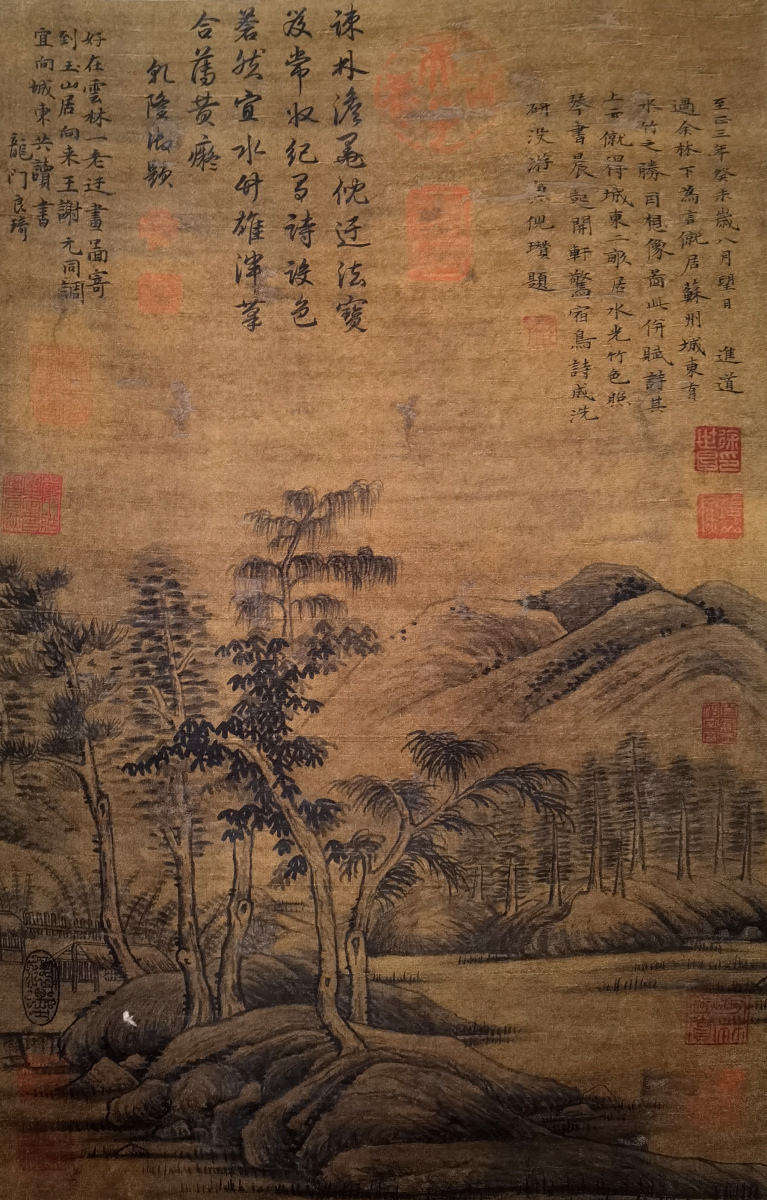 至正三年癸未歲八月望日 進道
過余林下為言僦居蘇州城東有
水竹之勝因想像圖此併賦詩其
上云僦得城東二畝居水光竹色照
琴書晨起開軒驚宿鳥詩成洗
研沒游魚倪瓚題
疎林澹墨倪迂法寶
笈常收紀詩設色
蒼然宜水竹雄渾筆
合舊黃癡
乾隆御題
好在雲林一老迂畫圖寄
到玉山居向來王謝元同調
宜向城東共讀書
龍門良琦